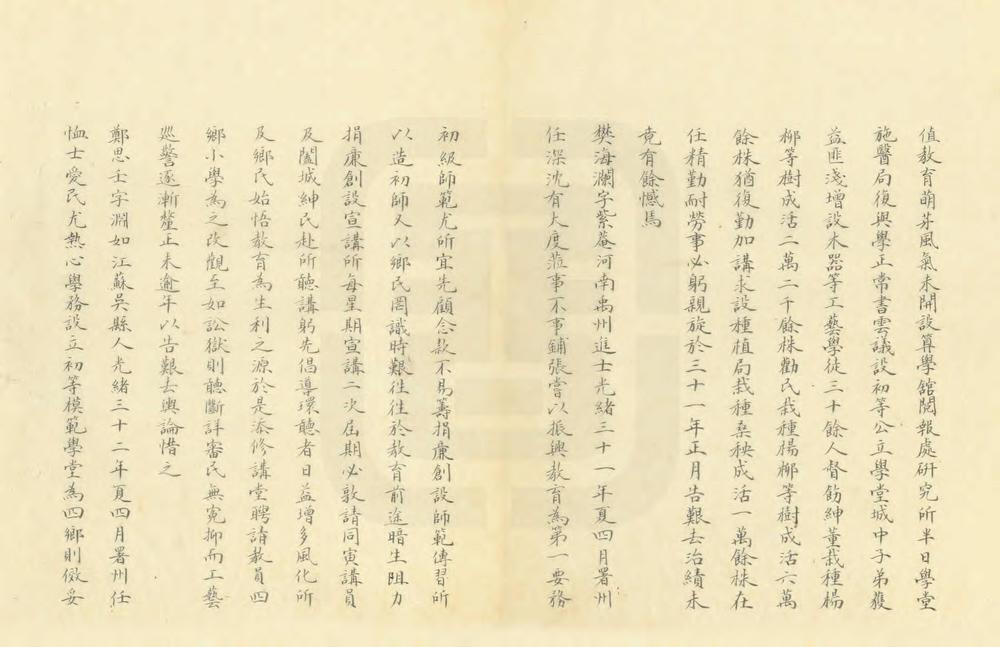 值敎育萌芽風氣未開設算學館閱報處硏究所半日學堂
施醫局復與學正常書雲議設初等公立學堂城中子弟獲
益匪淺增設木器等工藝學徒三十餘人督飭紳董栽種楊
柳等樹成活二萬二千餘株勸民栽種楊柳等樹成活六萬
餘株猶復勤加講求設種植局栽種桑秧成活一萬餘株在
任精勤耐勞事必躬親旋於三十一年正月告艱去治績未
竟有餘憾焉
樊海瀾字紫菴河南禹州進士光緒三十一年夏四月署州
任深沈有大度蒞事不事鋪張嘗以振興敎育爲第一要務
初級師範尤所宜先顧念款不易籌捐廉創設師範傳習所
以造初師又以鄉民罔識時艱往往於敎育前途暗生阻力
捐廉創設宣講所每星期宣講二次屆期必敦請同寅講員
及闔城紳民赴所聽講躬先倡導環聽者日益增多風化所
及鄉民始悟敎育為生利之源於是添修講堂聘請敎員四
鄉小學為之改觀至如訟獄則聽斷詳審民無寃抑而工藝
巡警逐漸釐正未逾年以告艱去輿論惜之
鄭思壬字淵如江蘇吳縣人光緒三十二年夏四月署州任
恤士愛民尤熱心學務設立初等模範學堂為四鄉則傚妥